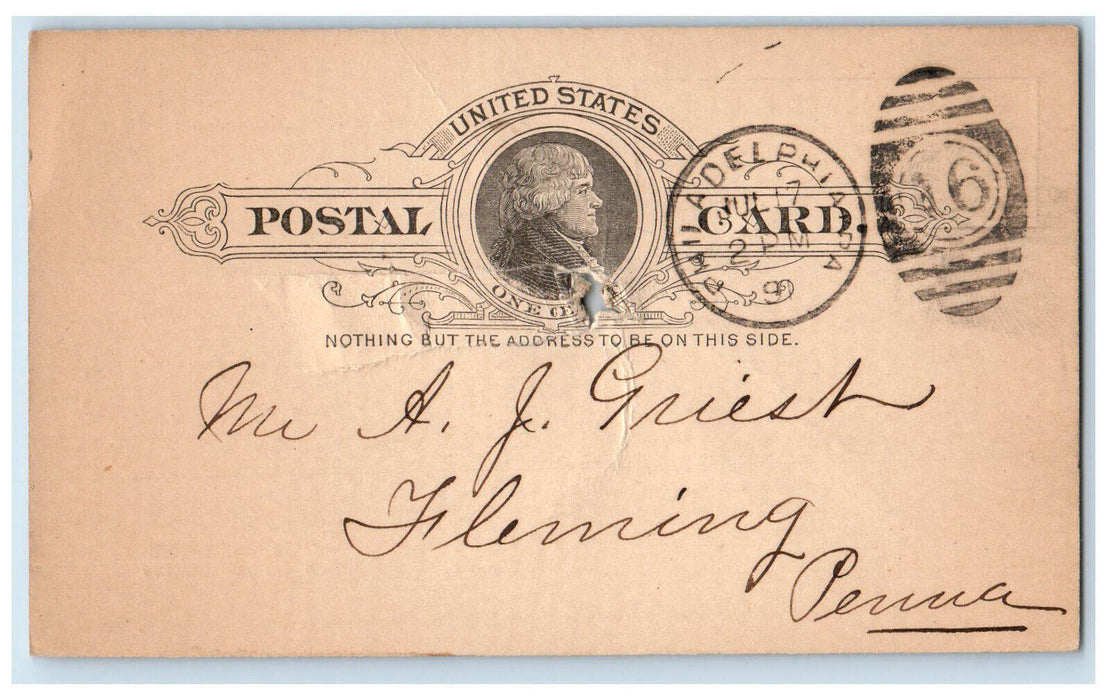 UNITED STATES
POSTAL CARD.
ONE CE
NOTHING BUT THE ADDRESS TO BE ON THIS SIDE.
PHILADELPHIA PA
JUL 17
2 PM
9
16
Mr A. J. Griest
Fleming
Penna